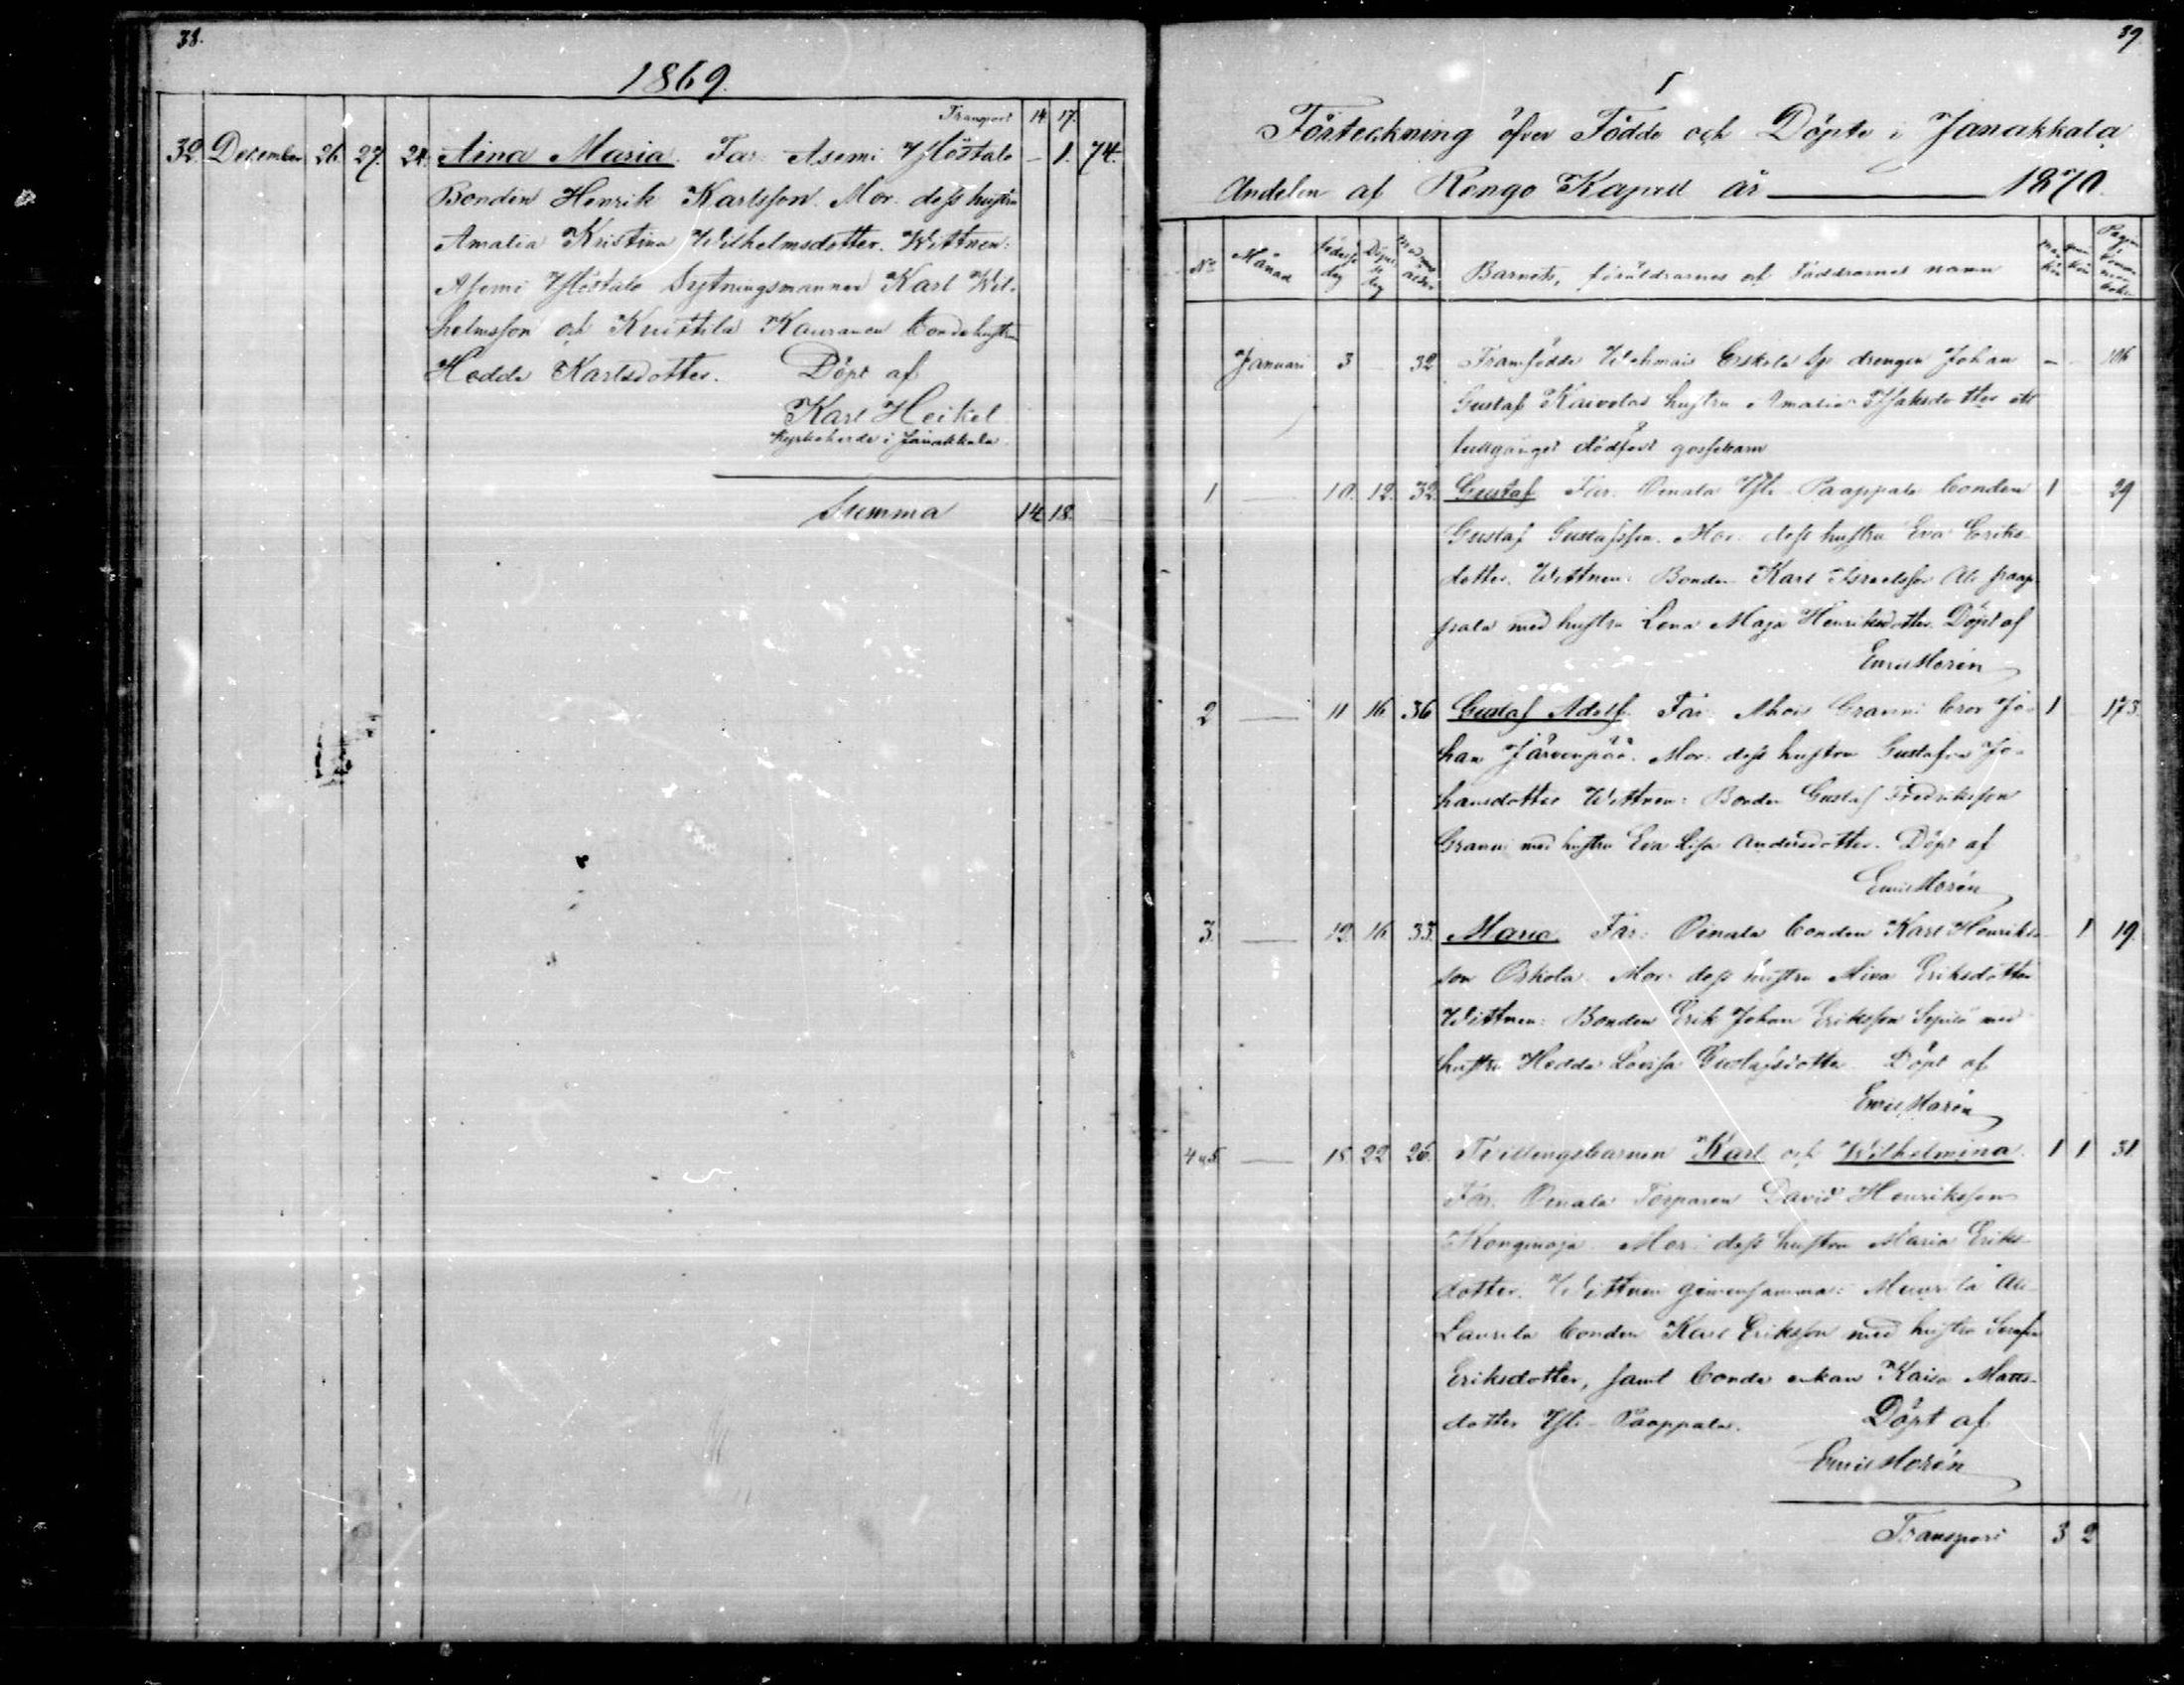 38.
1869.
Transport 14. 17.
32. December 26. 27. 24. Aina Maria. Far: Asemi Yföstalo – 1. 74.
Bonden Henrik Karlsson. Mor: dess hustru
Amalia Kristina Wilhelmsdotter. Wittnen:
Asemi Sytningsmannen Karl Wil-
helmsson och Kuittila Kauranen bondehustr.
Hedda Karlsdotter. Döpt af
Karl Heikel
Kyrkoherde i Janakkala.
Summa 14 18.
39.
Förteckning öfver Födde och Döpte i Janakkala
Andelen af Rengo Kapell år 1870.
No Månad Födelse dag Döpelse dag Modrens ålder Barnets, föräldrarnes och Faddrarnes namn
Januari 3 32 Framfödde Wehmais Eskola drengen Johan – 106
Gustaf Kaivolas hustru Amalia Isaksdotter ett
fullgånget dödfödt gossebarn
1 — 10. 12. 32. Gustaf Far: Oinala Yli-Paappala bonden 1 29
Gustaf Gustafsson. Mor: dess hustru Eva Eriks-
dotter. Wittnen: Bonden Karl Israelsson Ali paap-
pala med hustru Lena Maja Henriksdotter. Döpt af
Emil Morén
2 — 11 16 36 Gustaf Adolf. Far: Ahois Granni bror Jo- 1 173
han Järvenpää. Mor: dess hustru Gustafva Jo-
hansdotter Wittnen: Bonden Gustaf Fredriksson
Granni med hustru Eva Lisa Andersdotter. Döpt af
Emil Morén
3. — 12. 16. 33. Maria. Far: Oinala bonden Karl Henriks- 1 19.
son Oskola. Mor: dess hustru Mina Eriksdotter
Wittnen: Bonden Erik Johan Eriksson med
hustru Hedda Lovisa Gustafsdotter. Döpt af
Emil Morén
4 o 5. — 18. 22 26. Tvillingsbarnen Karl och Wilhelmina. 1 1 31
Far: Oinala Torparen David Henriksson
Konginoja. Mor: dess hustru Maria Eriks-
dotter. Wittnen gemensamma: Muurila Ali-
Laurila bonden Karl Eriksson med hustru Serafia
Eriksdotter, samt bonde enkan Kaisa Matts-
dotter Yli-Paappala. Döpt af
Emil Morén
Transport 3 2